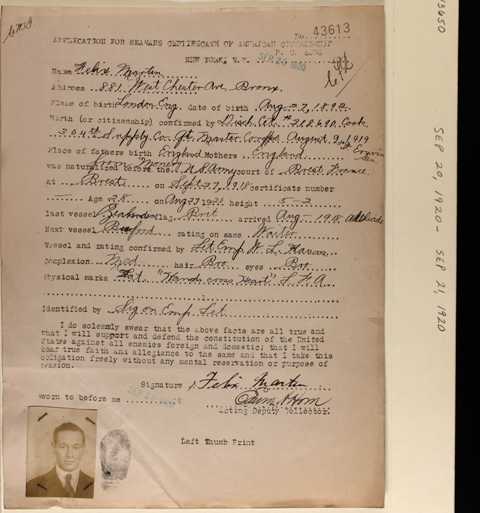 No. 43613
APPLICATION FOR SEAMANS CERTIFICATE OF AMERICAN CITIZENSHIP
NEW YORK, N.Y.
Name Felix Martin
Address 881 West Chester Ave, Bronx
Place of birth London Eng. date of birth Aug 27, 1892
Birth (or citizenship) confirmed by Disch Cer # Cook
304th Supply Co. Qt. Master Corps August 9th 1919
Place of fathers birth England Mothers England
was naturalized before the U.S. Army court of Brest France
at Brest on Sept 27, 1918 certificate number
Age 28 on Aug 27 1920 height 5-3
last vessel flag Brit arrived Aug.
Next vessel rating on same Waiter
Vessel and rating confirmed by Let Comp
Complexion Med hair Bro eyes Bro
Physical marks Tat. "Hands across Heart" L.F.A
Identified by Sig on Comp Let
I do solemnly swear that the above facts are all true and
that I will support and defend the constitution of the United
States against all enemies foreign and domestic; that I will
bear true faith and allegiance to the same and that I take this
obligation freely without any mental reservation or purpose of
evasion.
Signature Felix Martin
sworn to before me
Acting Deputy Collector.
Left Thumb Print
43650
SEP 20, 1920 - SEP 21, 1920